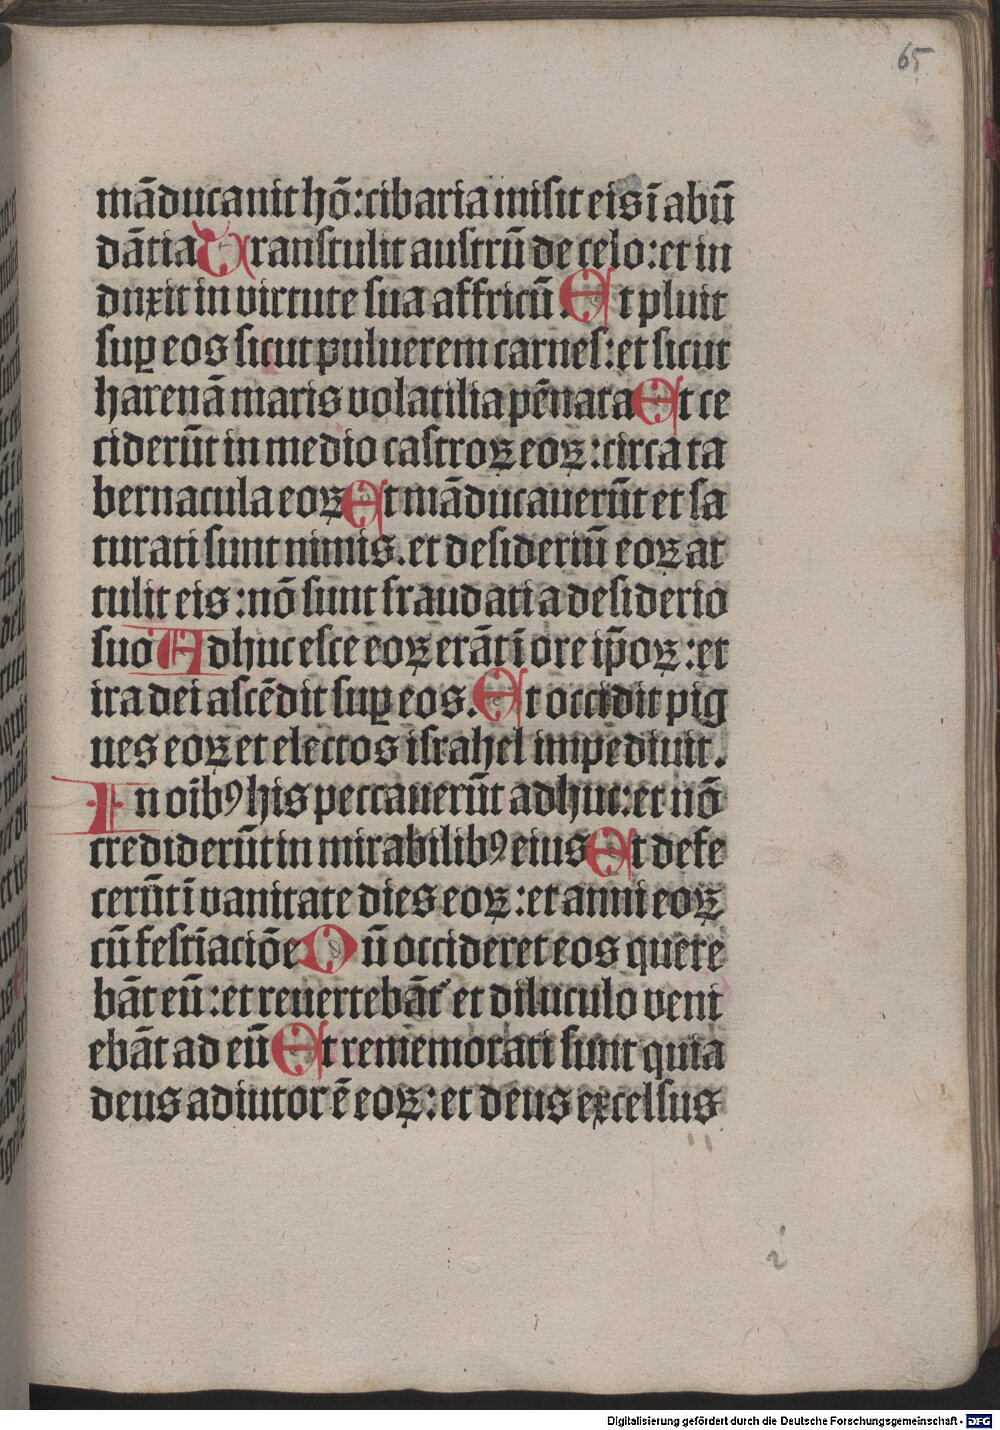 65
māducauit hō: cibaria misit eis ī abū
dātia Transtulit austrū de celo: et in
duxit in virtute sua affricū. Et pluit
suꝑ eos sicut puluerem carnes: et sicut
harenā maris volatilia pēnata Et ce
ciderūt in medio castroꝝ eoꝝ: circa ta
bernacula eoꝝ Et māducauerūt et sa
turati sunt nimis. et desideriū eoꝝ at
tulit eis: nō sunt fraudati a desiderio
suo Adhuc esce eoꝝ erāt ī ore ip̄oꝝ: et
ira dei ascēdit suꝑ eos. Et occidit pig
ues eoꝝ et electos israhel impediuit.
In oībꝰ his peccauerūt adhuc: et nō
crediderūt in mirabilibꝰ eius Et defe
cerūt ī vanitate dies eoꝝ: et anni eoꝝ
cū festīaciōe Cū occideret eos quere
bāt eū: et reuertebāt' et diluculo veni
ebāt ad eū Et rememorati sunt quia
deus adiutor ē eoꝝ: et deus excelsus
Digitalisierung gefördert durch die Deutsche Forschungsgemeinschaft - DFG